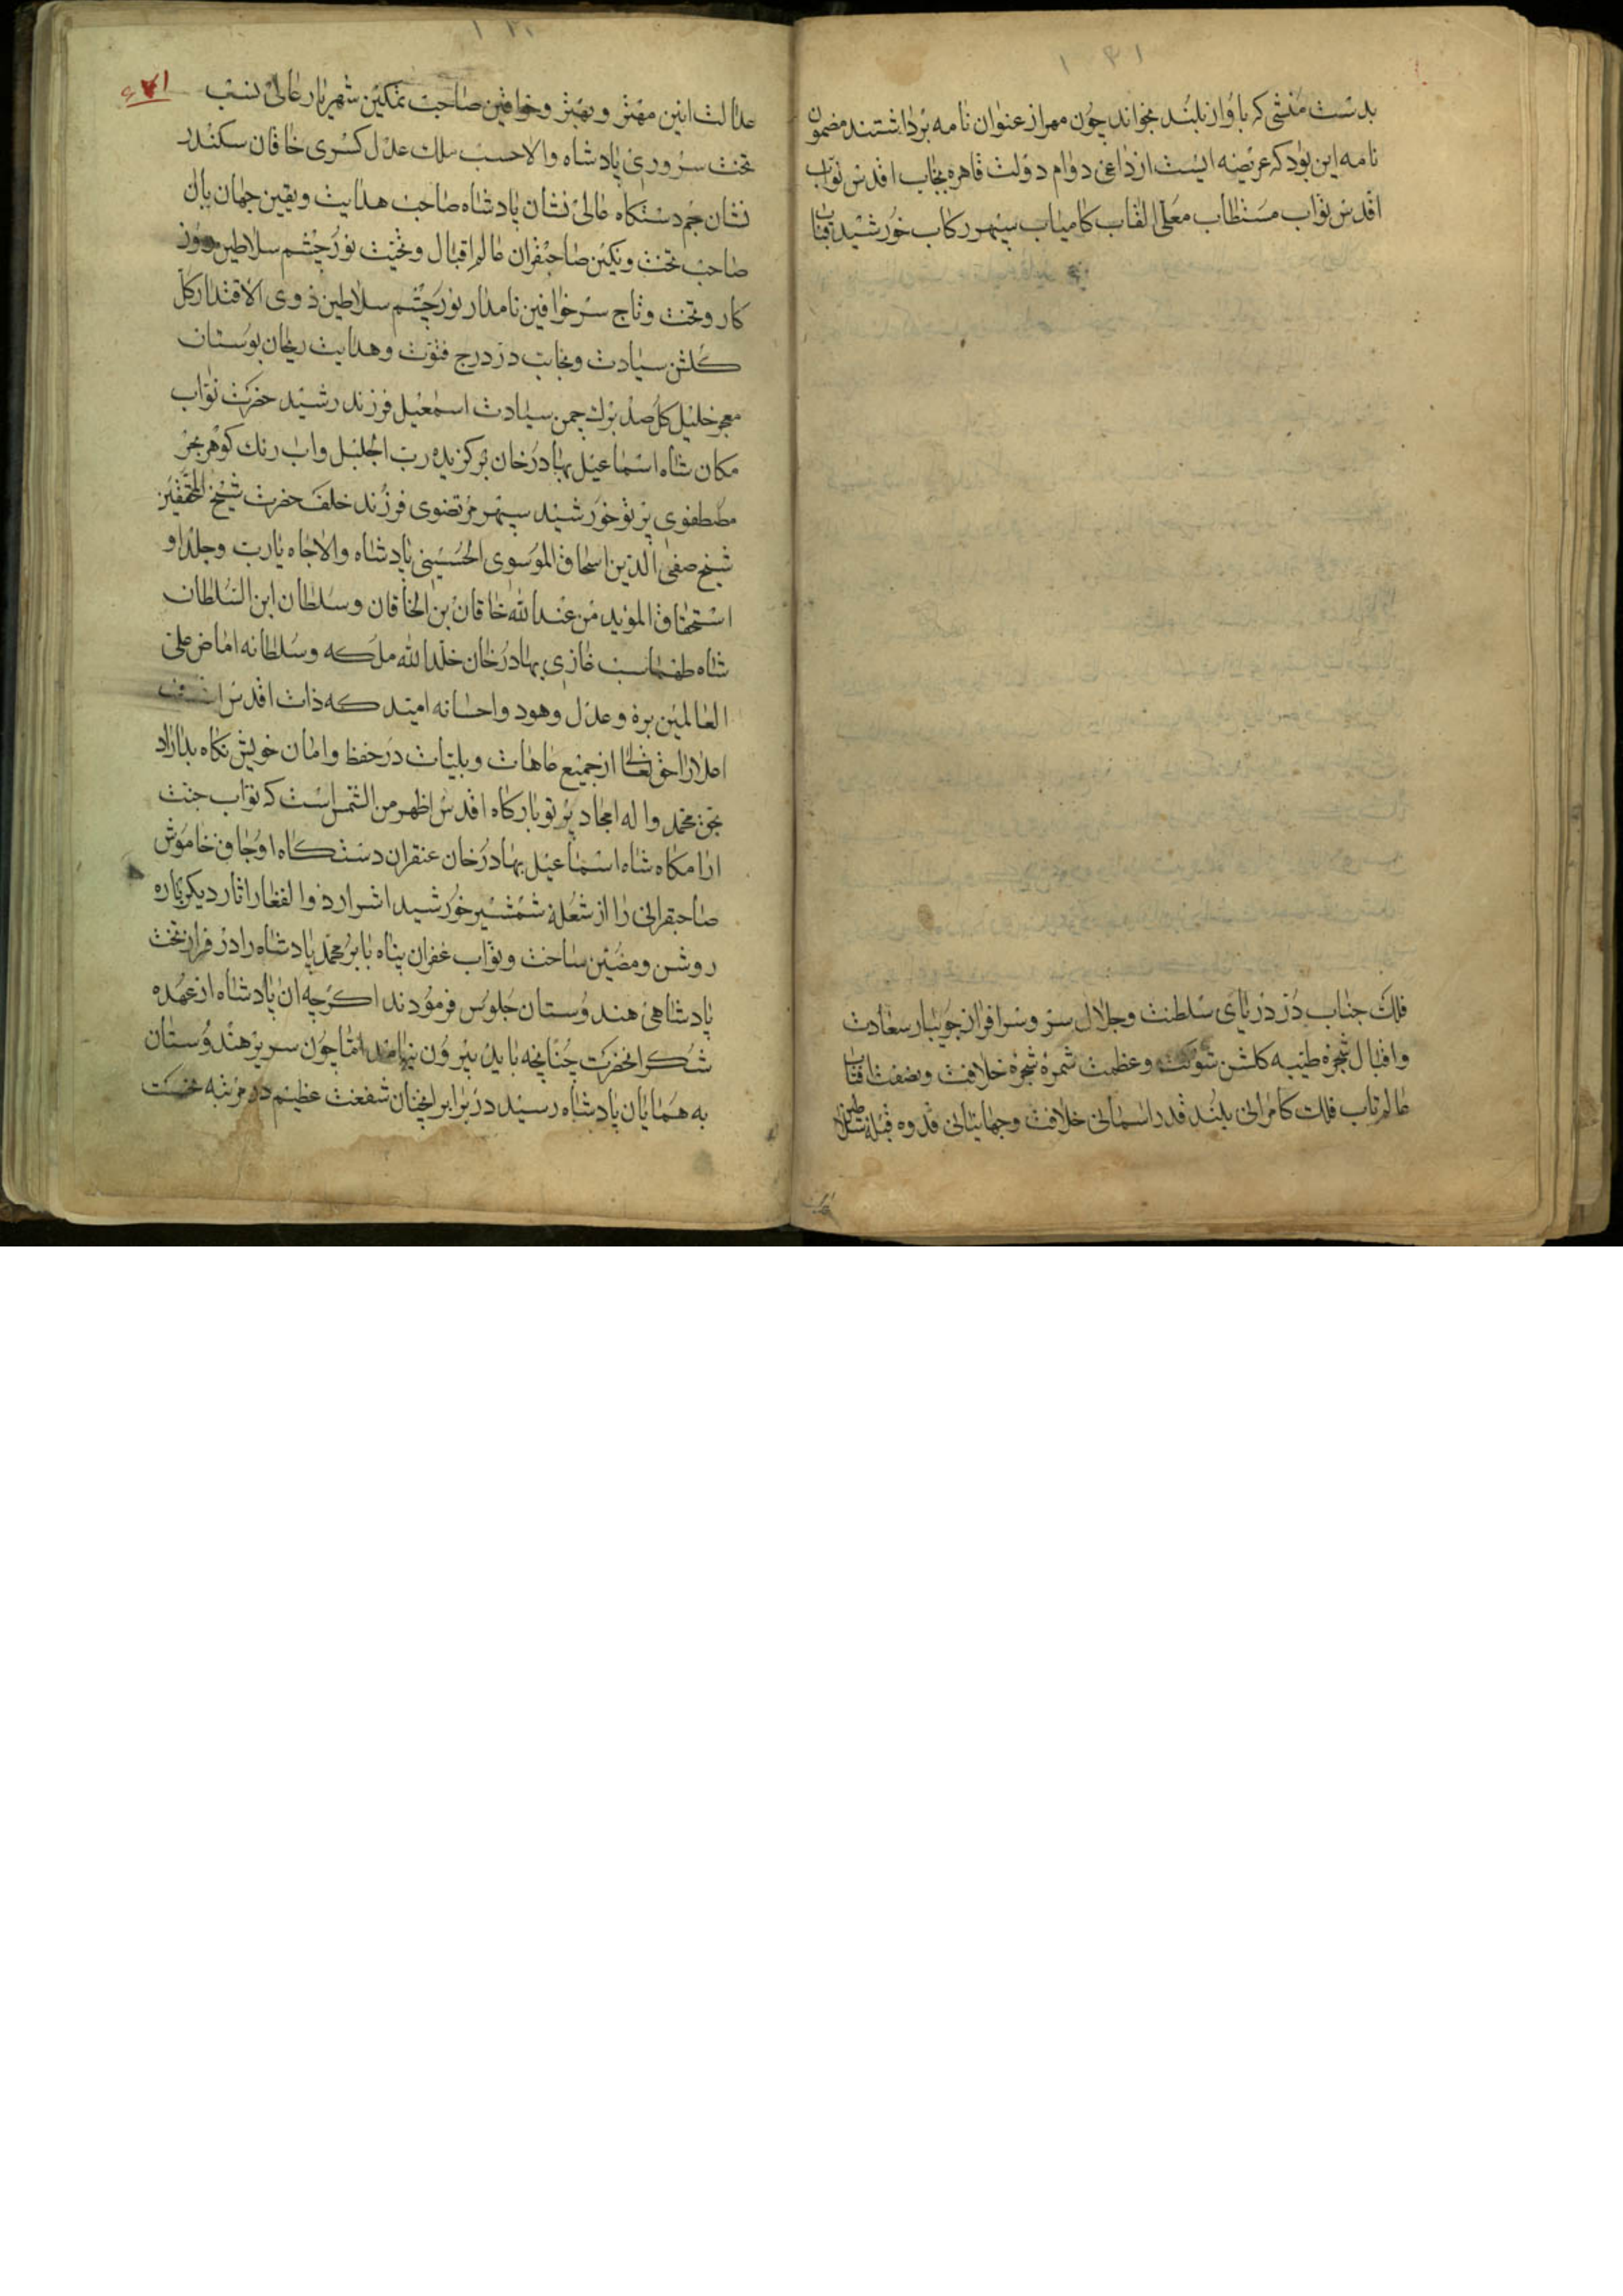 ۱۳۱
بدست منشی که باواز بلند بخواند چون مهر از عنوان نامه برداشتند مضمون
نامه این بود که عریضه ایست از داعی دوام دولت قاهره بجناب اقدس نواب
اقدس نواب مستطاب معلی القاب کامیاب سپهر رکاب خورشید قباب
فلک جناب دُر دریای سلطنت و جلال سرو سرافراز جویبار سعادت
و اقبال شجره طیبه کلشن شوکت و عظمت ثمره شجره خلافت و نصفت افتاب
عالم تاب فلک کامرانی بلند قدر اسمانی خلافت و جهانبانی قدوه قبله سلاطین
۱۳۰
۶۷۱
عدالت ائین مهتر و بهتر و خواقین صاحب تمکین شهریار عالی نسب
تخت سروری پادشاه والا حسب ملک عدل کسری خاقان سکندر
نشان جم دستکاه عالی نشان پادشاه صاحب هدایت و یقین جهان بان
صاحب تخت و نکین صاحبقران عالم اقبال و بخت نور چشم سلاطین
کار و تخت و تاج سر خواقین نامدار نور چشم سلاطین ذوی الاقتدار کل
کلشن سیادت و نجابت در درج فتوت و هدایت ریحان بوستان
معجر خلیل کل صد برک چمن سیادت اسمعیل فرزند رشید حضرت نواب
مکان شاه اسماعیل بهادرخان برکزیده رب الجلیل و اب رنک کوهر بحر
مصطفوی پرتو خورشید سپهر مرتضوی فرزند خلف حضرت شیخ المحققین
شیخ صفی الدین اسحاق الموسوی الحسینی پادشاه والا جاه یا رب وجلدا و
استحقاق المؤید من عندالله خاقان بن الخاقان و سلطان ابن السلطان
شاه طهماسب غازی بهادرخان خلدالله ملکه و سلطانه افاض علی
العالمین بره و عدل وهود و احسانه امید که ذات اقدس اشرف
اعلا را حق تعالی از جمیع عاهات و بلیات در حفظ و امان خویش نکاه بداراد
بحق محمد و اله امجاد پرتو بارکاه اقدس اظهر من الشمس است که نواب جنت
ارامکاه شاه اسماعیل بهادرخان دستکاه اوجاق خاموش
صاحبقرانی را از شعله شمشیر خورشید اشرار ذوالفقار اثار دیکر باره
روشن و مضئین ساخت و نواب غفران پناه بابر محمد پادشاه را در فراز تخت
پادشاهی هندوستان جلوس فرمودند اکرچه ان پادشاه از عهده
شکر انحضرت چنانچه باید بیرون نیامد اما چون سریر هندوستان
به همایان پادشاه رسید در برابر انچنان شفعت عظیم در مرتبه نخست